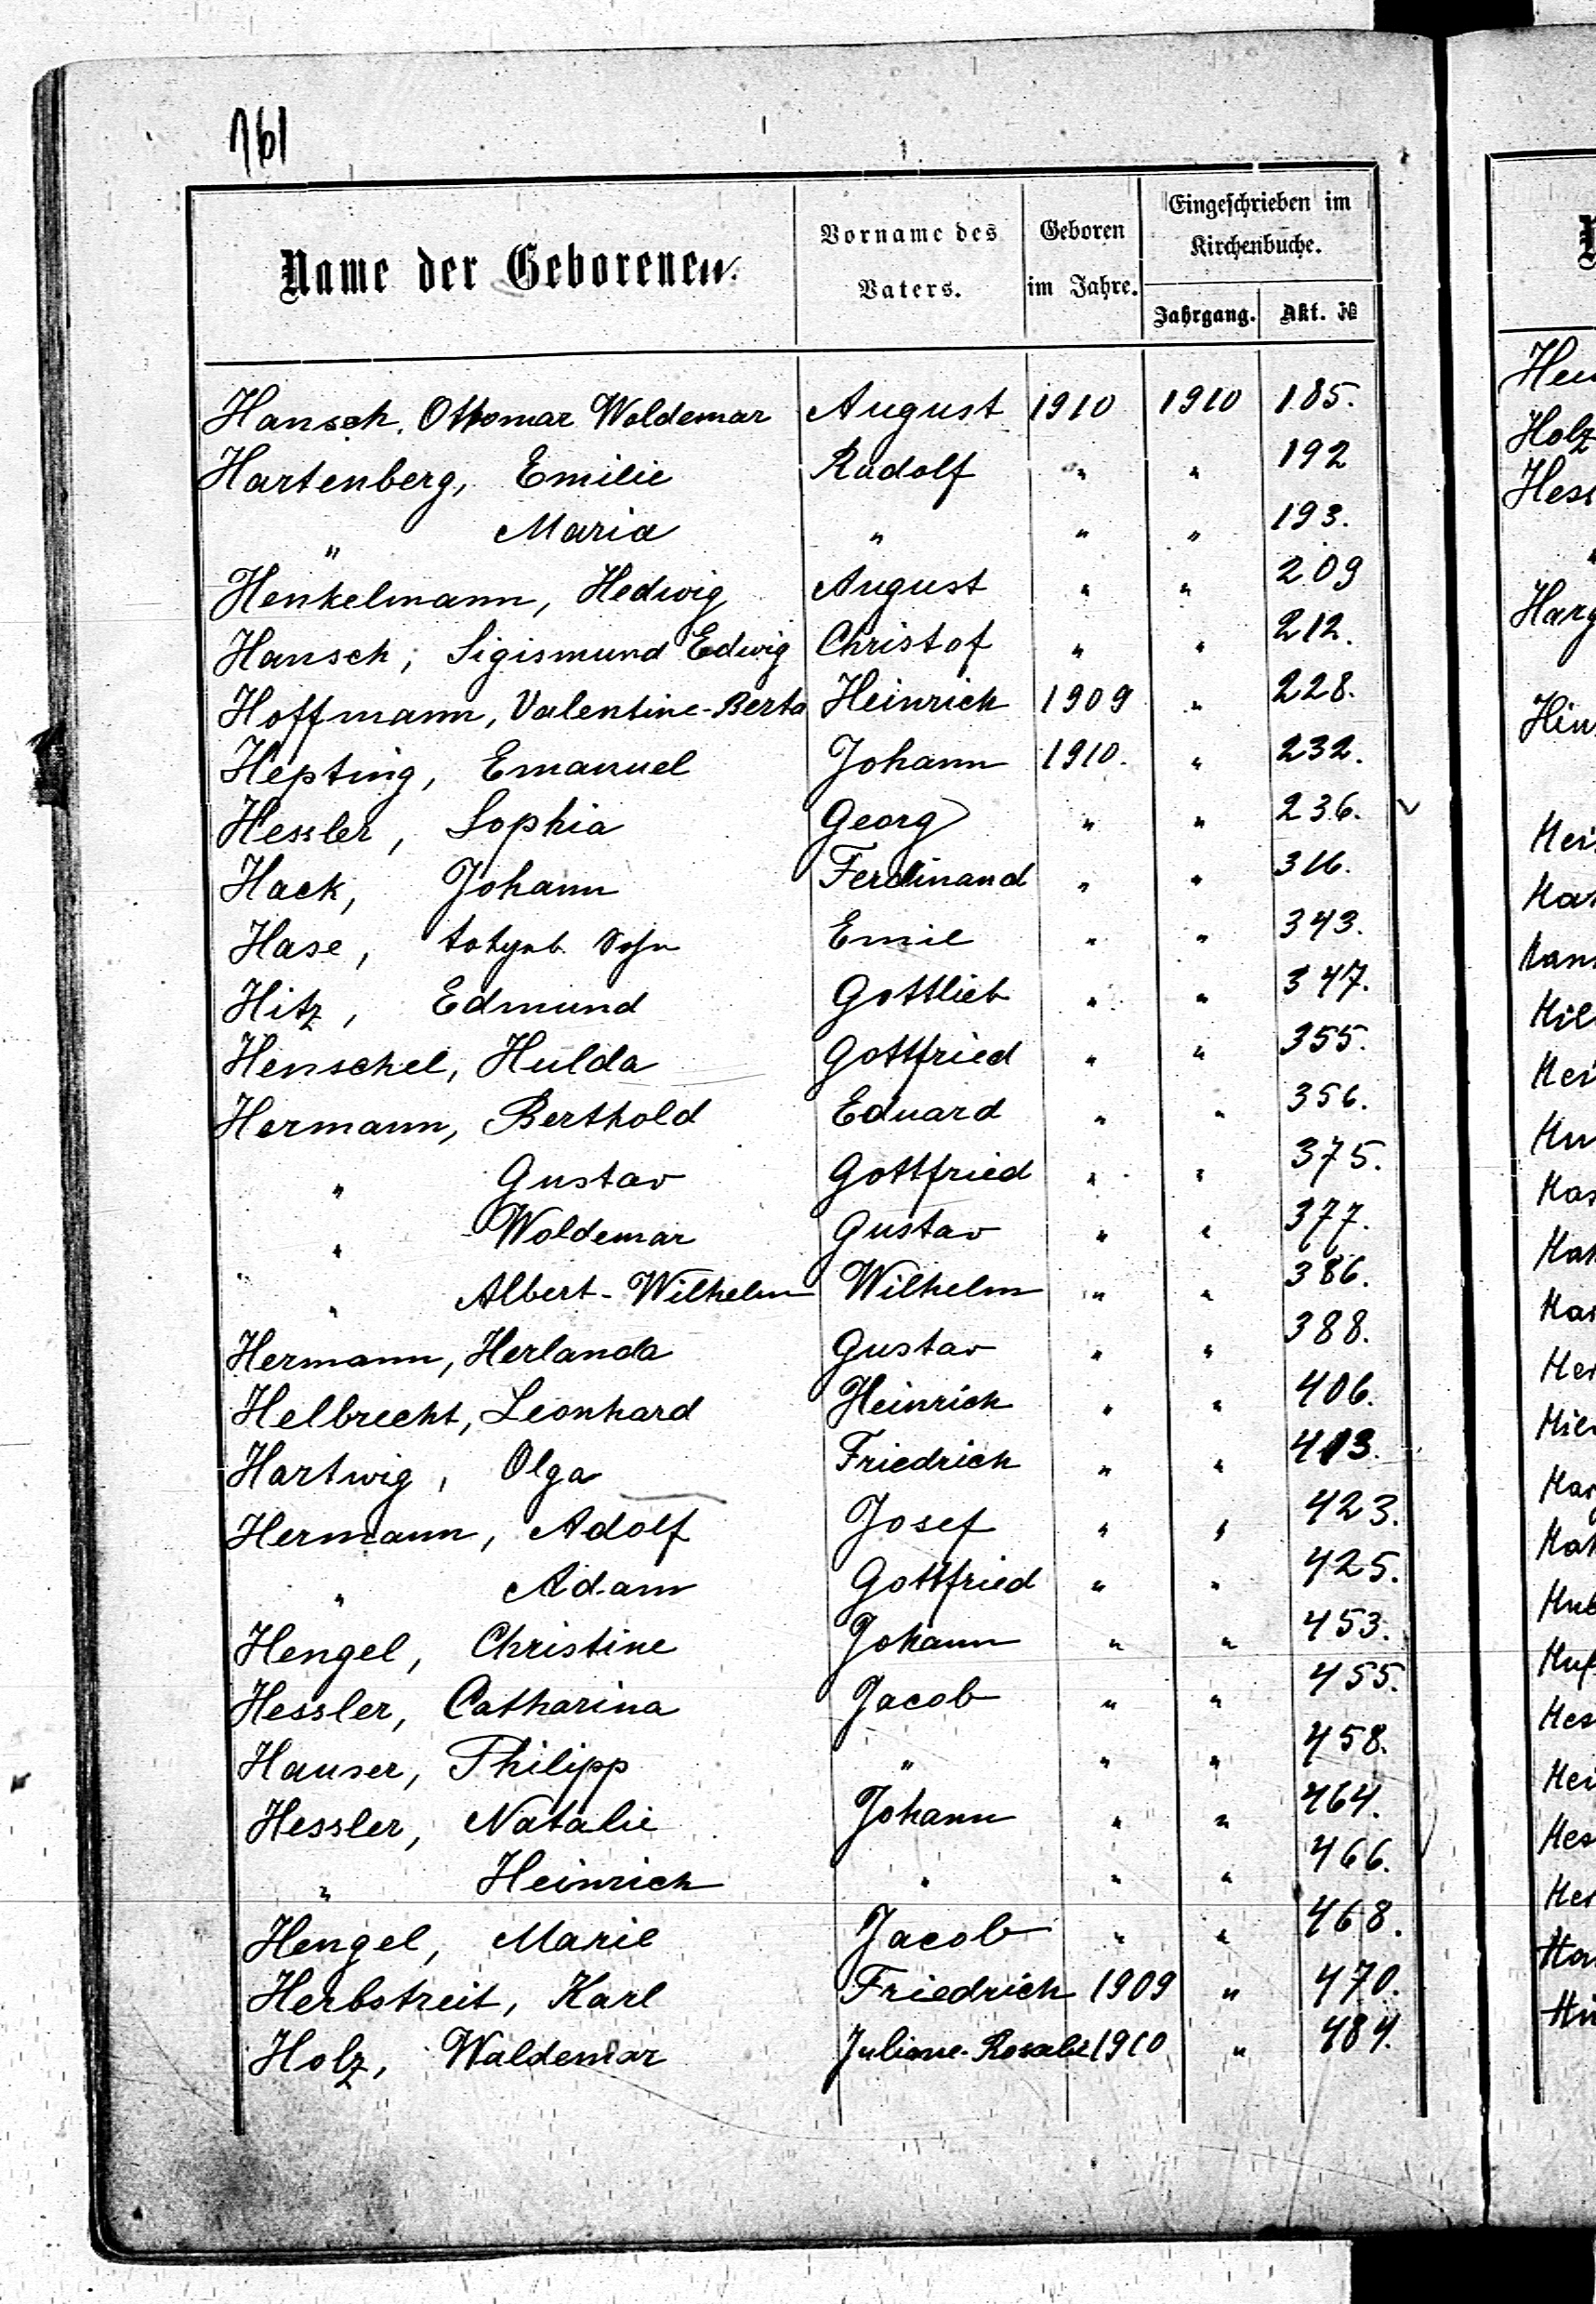 161
Name der Geborenen.
Vorname des Vaters.
Geboren im Jahre.
Eingeschrieben im Kirchenbuche.
Jahrgang. Akt. №
Hansch, Ottomar Woldemar August 1910 1910 185.
Hartenberg, Emilie Rudolf " " 192
" Maria " " " 193.
Henkelmann, Hedwig August " " 209
Hansch, Sigismund Edwig Christof " " 212.
Hoffmann, Valentine-Berta Heinrich 1909 " 228.
Hepting, Emanuel Johann 1910. " 232.
Hessler, Sophia Georg " " 236.
Hack, Johann Ferdinand " " 316.
Hase, totgeb. Sohn Emil " " 343.
Hitz, Edmund Gottlieb " " 347.
Henschel, Hulda Gottfried " " 355.
Hermann, Berthold Eduard " " 356.
" Gustav Gottfried " " 375.
" Woldemar Gustav " " 377.
" Albert-Wilhelm Wilhelm " " 386.
Hermann, Herlanda Gustav " " 388.
Helbrecht, Leonhard Heinrich " " 406.
Hartwig, Olga Friedrich " " 413.
Hermann, Adolf Josef " " 423.
" Adam Gottfried " " 425.
Hengel, Christine Johann " " 453.
Hessler, Catharina Jacob " " 455.
Hauser, Philipp " " " 458.
Hessler, Natalie Johann " " 464.
" Heinrich " " " 466.
Hengel, Marie Jacob " " 468.
Herbstreit, Karl Friedrich 1909 " 470.
Holz, Waldemar Juliane-Rosalie 1910 " 484.